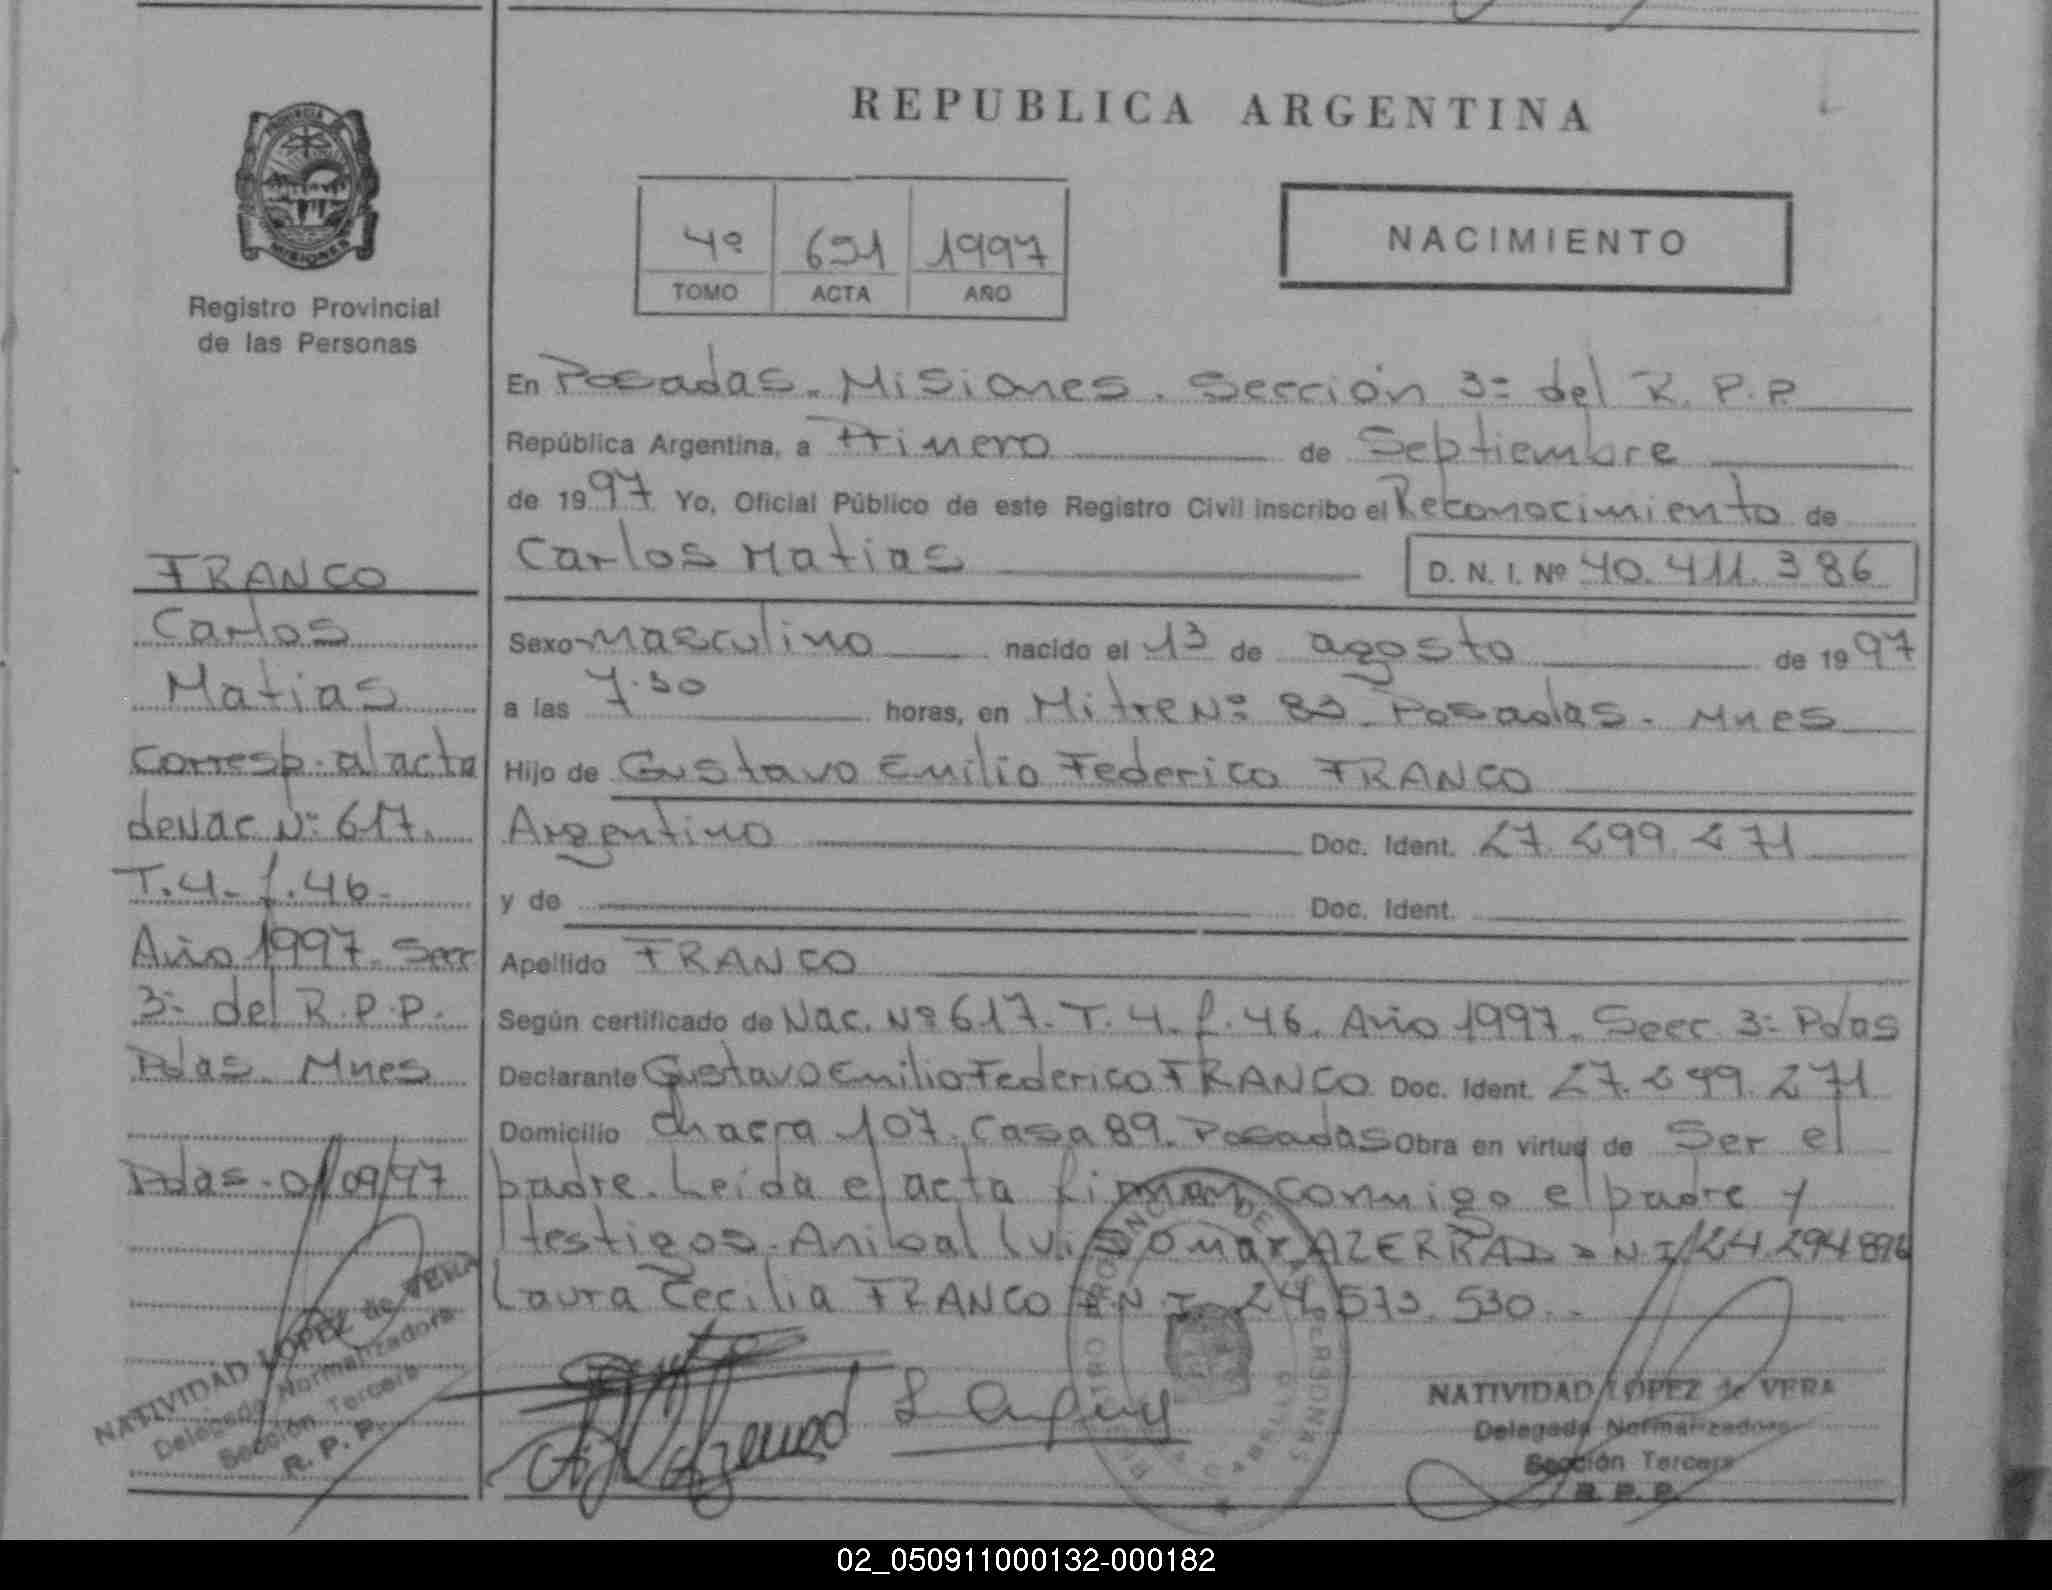 REPUBLICA ARGENTINA
PROVINCIA
MISIONES
Registro Provincial
de las Personas
4º 691 1997
TOMO ACTA AÑO
NACIMIENTO
En Posadas. Misiones. Sección 3º del R.P.P.
República Argentina, a Primero de Septiembre
de 1997 Yo, Oficial Público de este Registro Civil inscribo el Reconocimiento de
Carlos Matias D. N. I. Nº 40.411.386
Sexo masculino nacido el 13 de agosto de 1997
a las 7.30 horas, en Mitre Nº 83 Posadas. Mnes
Hijo de Gustavo Emilio Federico FRANCO
Argentino Doc. Ident. 27.299.271
y de Doc. Ident.
Apellido FRANCO
Según certificado de Nac. Nº 617. T. 4. f. 46. Año 1997. Secc. 3º Pdas
Declarante Gustavo Emilio Federico FRANCO Doc. Ident. 27.299.271
Domicilio Chacra 107. Casa 89. Posadas Obra en virtud de Ser el
padre. Leida el acta firman conmigo el padre y
testigos. Anibal Luis Omar AZERRAD D.N.I. 24.294.896
Laura Cecilia FRANCO D.N.I. 24.573.530.
FRANCO
Carlos
Matias
Corresp. al acta
de Nac Nº 617.
T.4. f.46.
Año 1997. Secc
3º del R.P.P.
Pdas. Mnes
Pdas. 01/09/97
NATIVIDAD LOPEZ de VERA
Delegada Normalizadora
Sección Tercera
R. P. P.
NATIVIDAD LOPEZ de VERA
Delegada Normalizadora
Sección Tercera
R. P. P.
02_050911000132-000182